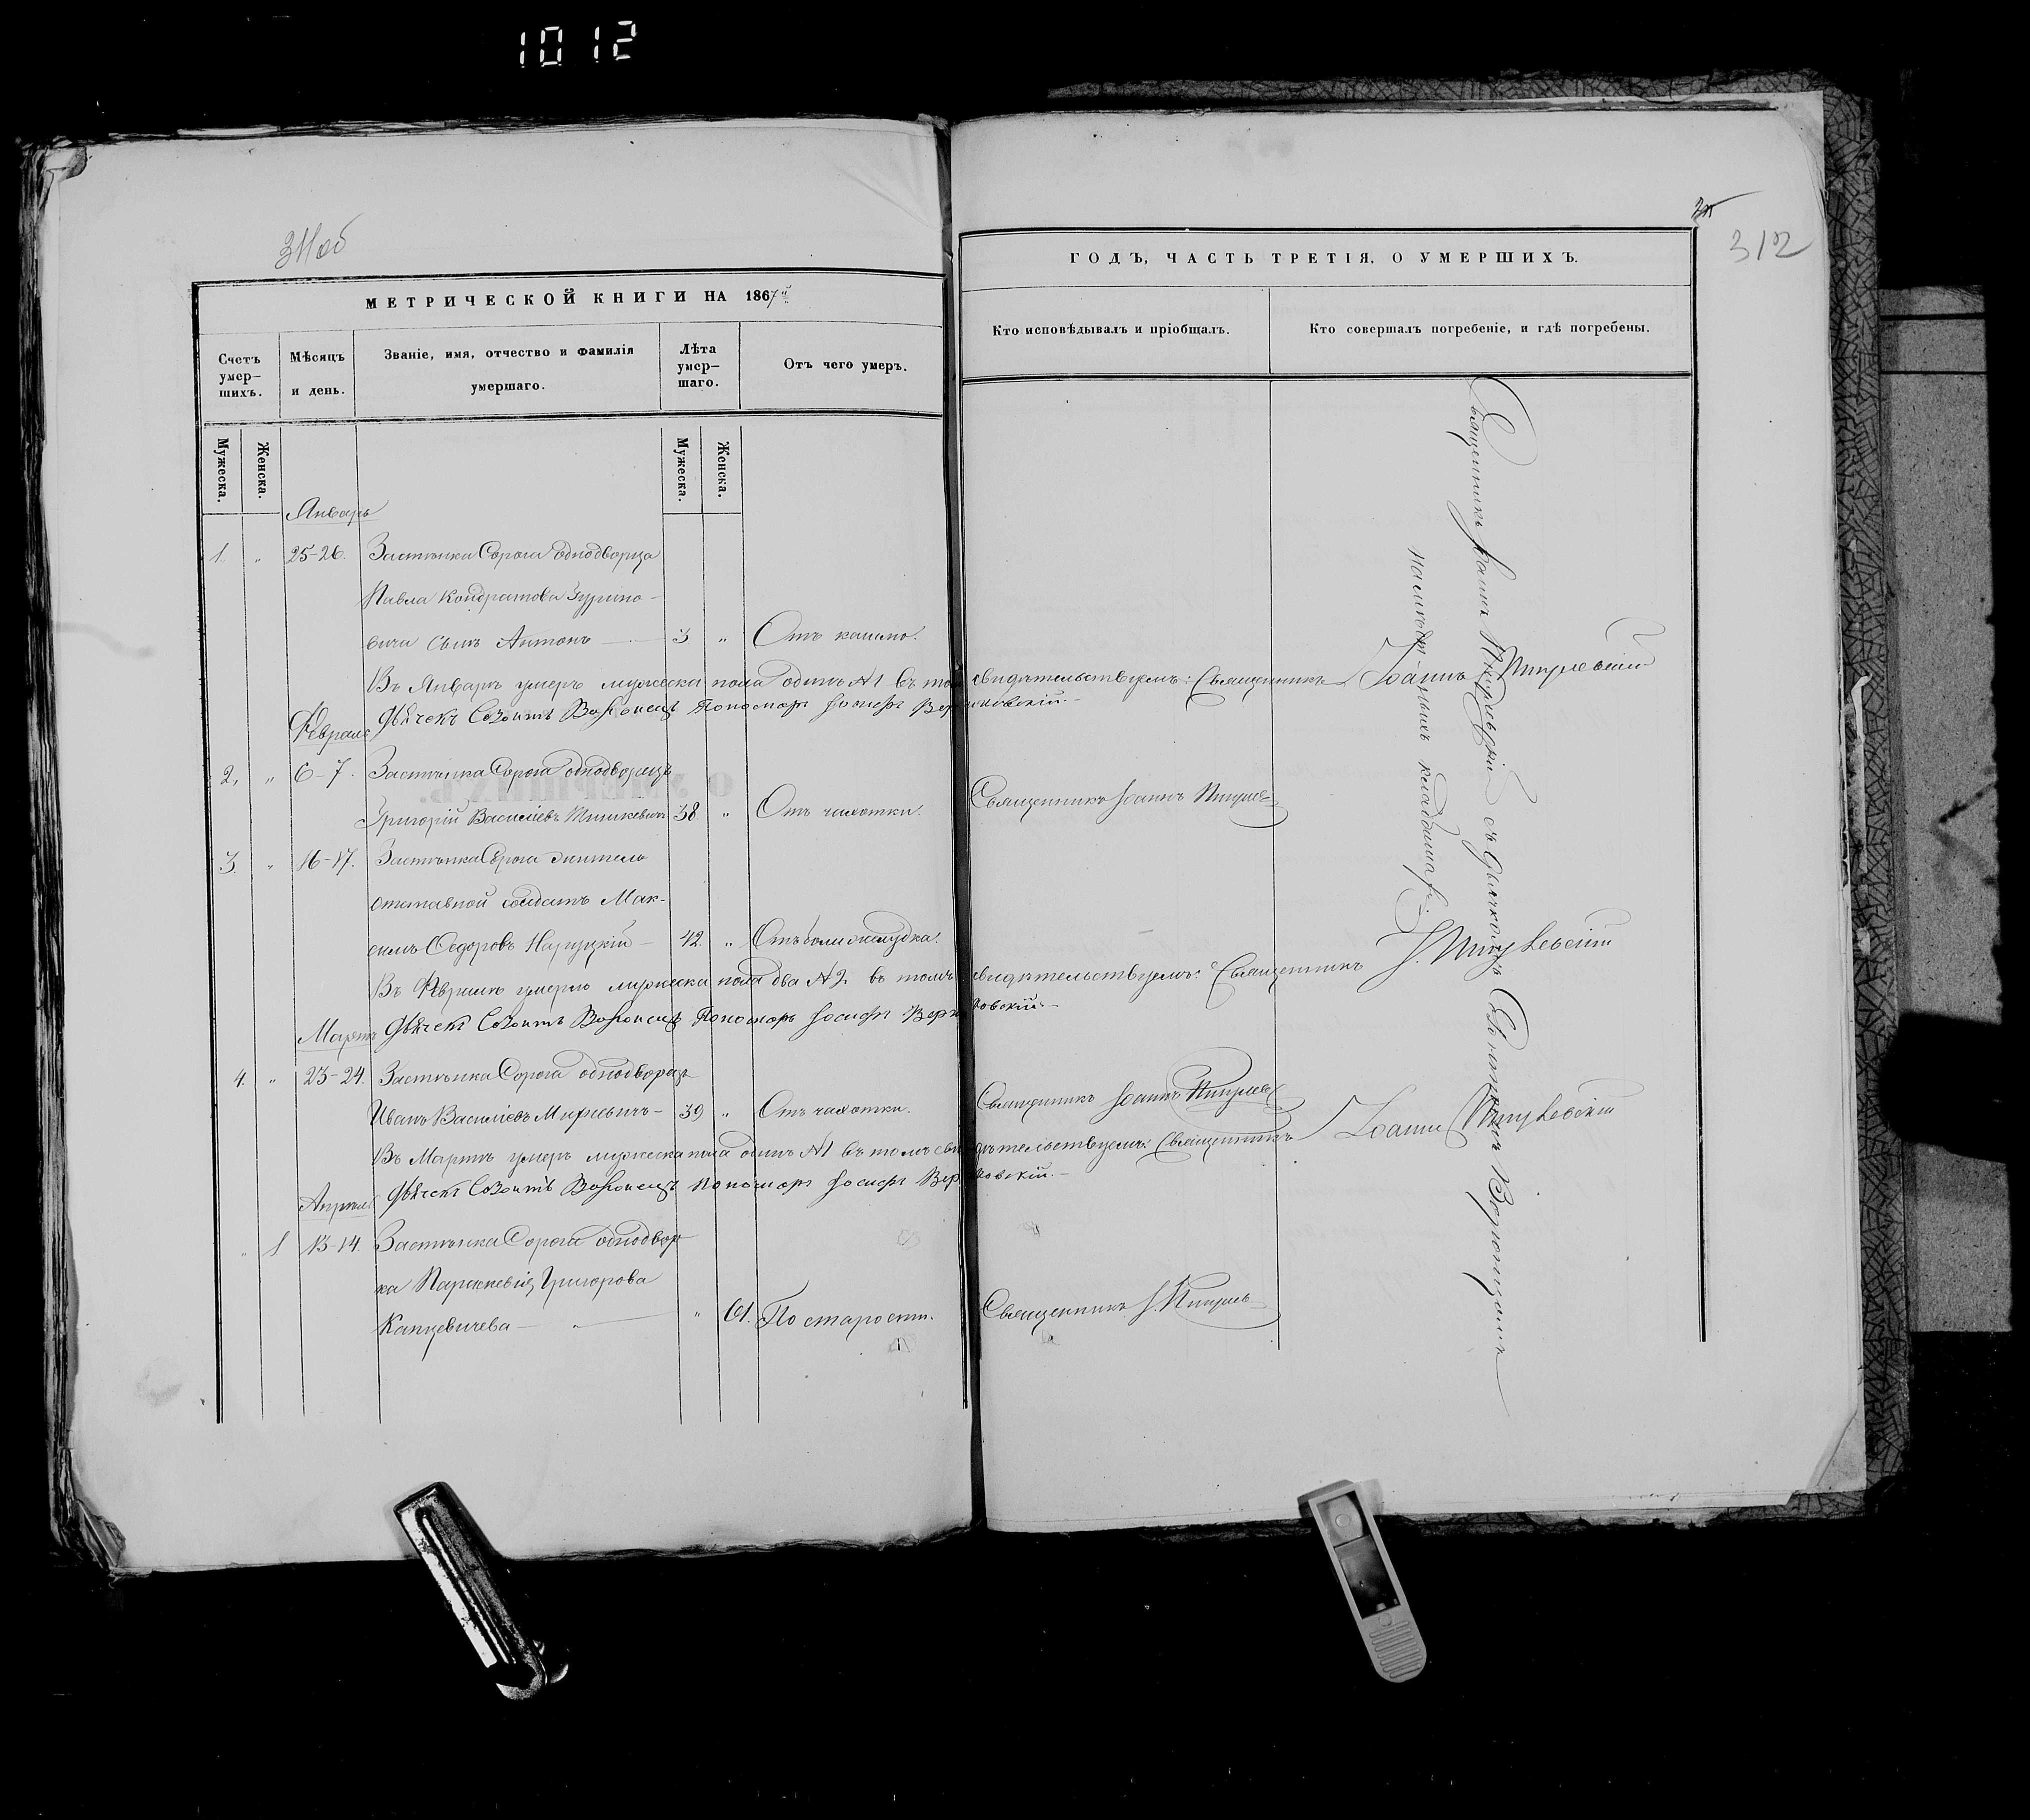 1012
311об
312
МЕТРИЧЕСКОЙ КНИГИ НА 1867й
ГОДЪ, ЧАСТЬ ТРЕТІЯ, О УМЕРШИХЪ.
Счетъ умер-шихъ.
Мѣсяцъ и день.
Званіе, имя, отчество и фамилія умершаго.
Лѣта умер-шаго.
Отъ чего умеръ.
Кто исповѣдывалъ и пріобщалъ.
Кто совершалъ погребеніе, и гдѣ погребены.
Мужеска.
Женска.
Мужеска.
Женска.
Январь
1. " 25-26. Застѣнка Сорога однодворца
Павла Кондратова Гурино-
вича сынъ Антонъ — 3 " Отъ кашлю.
Въ Январѣ умеръ мужеска пола одинъ №1 въ томъ свидѣтельствуемъ: Священникъ Іоаннъ
Дьячекъ Созонтъ Воронецъ Пономарь Іосифъ
Февраль
2. " 6-7. Застѣнка Сорога однодворецъ
Григорій Василіевъ 38 " Отъ чахотки. Священникъ Іоаннъ
3. " 16-17. Застѣнка Сорога житель
отставной солдатъ Мак-
симъ Федоровъ — 42. " Отъ боли желудка.
Въ Февралѣ умерло мужеска пола два №2. въ томъ свидѣтельствуемъ: Священникъ І.
Дьячекъ Созонтъ Воронецъ Пономарь Іосифъ
Мартъ
4. " 23-24. Застѣнка Сорога однодворецъ
Иванъ Василіевъ — 39 " Отъ чахотки. Священникъ Іоаннъ
Въ Мартѣ умеръ мужеска пола одинъ №1 въ томъ свидѣтельствуемъ: Священникъ Іоаннъ
Дьячекъ Созонтъ Воронецъ Пономарь Іосифъ
Апрѣль
" 1 13-14. Застѣнка Сорога однодвор
ка Григорова
Капцевичева — " 61. По старости. Священникъ І.
Священникъ Іоаннъ съ Дьячкомъ Созонтомъ Воронцомъ
на кладбищахъ.